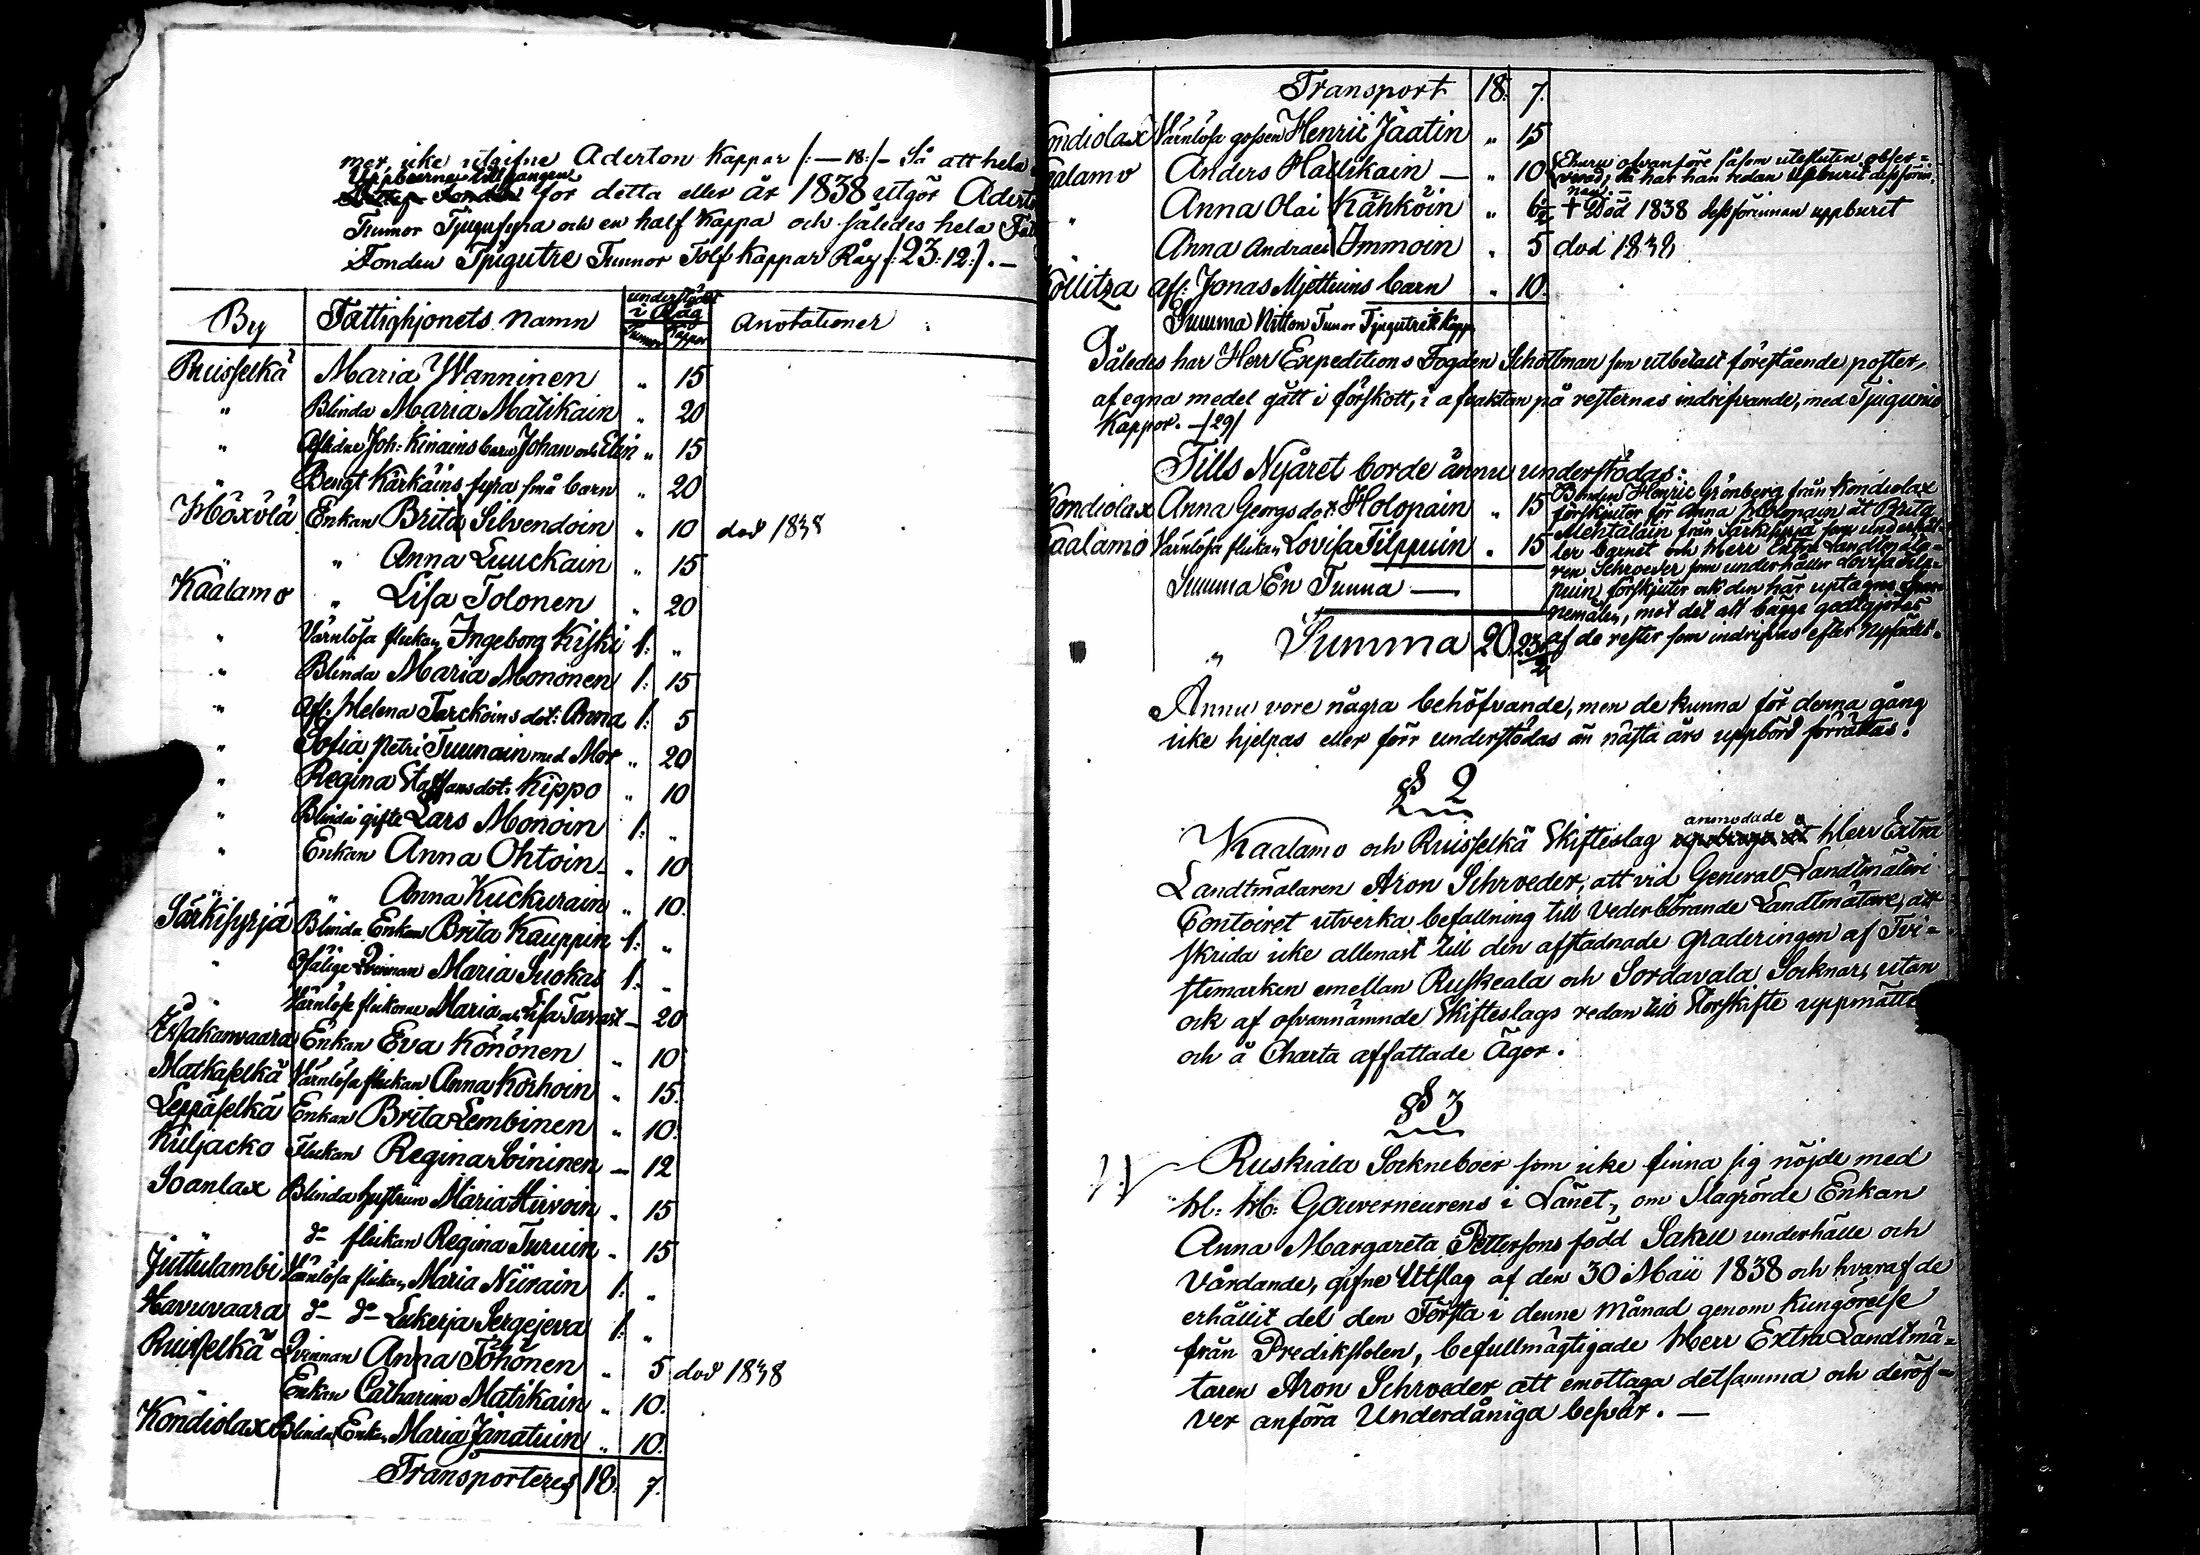 mer icke utgifne Aderton Kappar /:—18:/— Så att hela
Uppbeerne tillgangen
för detta eller år 1838 utgör Adert
Tunnor Tjugufyra och en half Kappa och således hela Fat
Fonden Tjugutre Tunnor Tolf Kappar Råg /:23:12:/.—
By Fattighjonets Namn understödet i Råg Anotationer
Tunnor Kappor
Ruisselkä Maria Wanninen " 15
" Blinda Maria Matikain " 20
" Aflidne Joh: Kinains barn Johan och Elin " 15
" Bengt Kärkäins fyra små barn " 20
Höxölä Enkan Brita Silvendoin " 10 död 1838
" " Anna Luuckain " 15
Kaalamo " Lisa Tolonen " 20
" Värnlösa flickan Ingeborg Kiski 1: "
" Blinda Maria Mononen 1: 15
" afl: Helena Tarckoins dot: Anna 1: 5
" Sofia Petri Tuunain med Mor " 20
" Regina Staffansdot: Kippo " 10
" Blinda gifte Lars Monoin 1: "
" Enkan Anna Ohtoin " 10
" " Anna Kuckurain " 10.
Särkisyrjä Blinda Enkan Brita Kauppin 1: "
" Ofälige Qvinnan Maria Suokas 1: "
" Värnlöse flickorne Maria och Lisa Tavast — 20
Enkan Eva Könönen " 10
Matkaselkä Värnlösa flickan Anna Korhoin " 15.
Leppäselkä Enkan Brita Lembinen " 10.
Kuljacko Flickan Regina Soininen — 12
Soanlax Blinda hustrun Maria Hirvoin " 15
" d:o flickan Regina Turuin " 15
Juttulambi Värnlösa flickan Maria Niirain 1: "
Havuvaara d:o d:o Lukerja Sergejeva 1: "
Ruisselkä Qvinnan Anna Töhönen " 5 död 1838
" Enkan Catharina Matikain " 10.
Kondiolax Blinda Enkan Maria Jänatuin " 10.
Transporteres 18. 7.
Transport 18. 7.
Kondiolax Värnlösa gossen Henric Jaatin " 15
Kaalamo Anders Hallikain — " 10 Ehuru ofvanföre såsom utesluten obser=
verad, så har han redan upburit dessförin=
nan.
" Anna Olai Kähköin " 6½ + Död 1838 dessförinnan uppburit
" Anna Andraes Immoin " 5 död 1838
Kollitza afl: Jonas Mjettiuins barn " 10.
Summa Nitton Tunor Tjugutre ½ Kapp
Således har Herr Expeditions Fogden Schottman som utbetalt föreståendе poster,
af egna medel gått i förskott, i afvaktan på resternas indrifvande, med Tjugunio
Kappor. —/29/
Tills Nyåret borde ännu understödas:
Kondiolax Anna Georgs dot: Holopain " 15 Bonden Henric Grönberg från Kondiolax
förskjuter för Anna Holopain åt Brita
från Särkisyrjä som underhål=
Kaalamo Värnlösa flickan Lovisa Filppuin " 15
ler barnet och Herr Extra Landtmäta=
ren Schroeder som underhåller Lovisa Filp=
Summa En Tunna —
puin, förskjuter ock den här uptagne span=
nemålen, mot det att bägge godtgöres
" Summa 20 23½ af de rester som indrifvas efter Nyåret.
Ännu vore några behöfvande, men de kunna för denna gång
icke hjelpas eller förr understödas än nästa års uppbörd förrättas.
§ 2
anmodade
Kaalamo och Ruisselkä Skifteslag Herr Extra
Landtmätaren Aron Schroeder, att vid General Landtmäteri
Contoiret utverka befallning till Vederbörande Landtmätare, att
skrida icke allenast till den afstadnade graderingen af Tvi=
stemarken emellan Ruskeala och Sordavala Socknar, utan
ock af ofvannämnde Skifteslags redan till Storskifte uppmätte
och å Charta affattade Ägor.
§ 3
Ruskiala Sockneboer som icke finna sig nöjde med
H: H: Gouverneurens i Länet, om Slagrörde Enkan
Anna Margareta Pettersons född Sakell underhålle och
Vårdande, gifne Utslag af den 30 Maii 1838 och hvaraf de
erhållit del den Första i denne månad genom Kungörelse
från Predikstolen, befullmägtigade Herr Extra Landtmä=
taren Aron Schroeder att emottaga detsamma och deröf=
ver anföra Underdåniga besvär. —